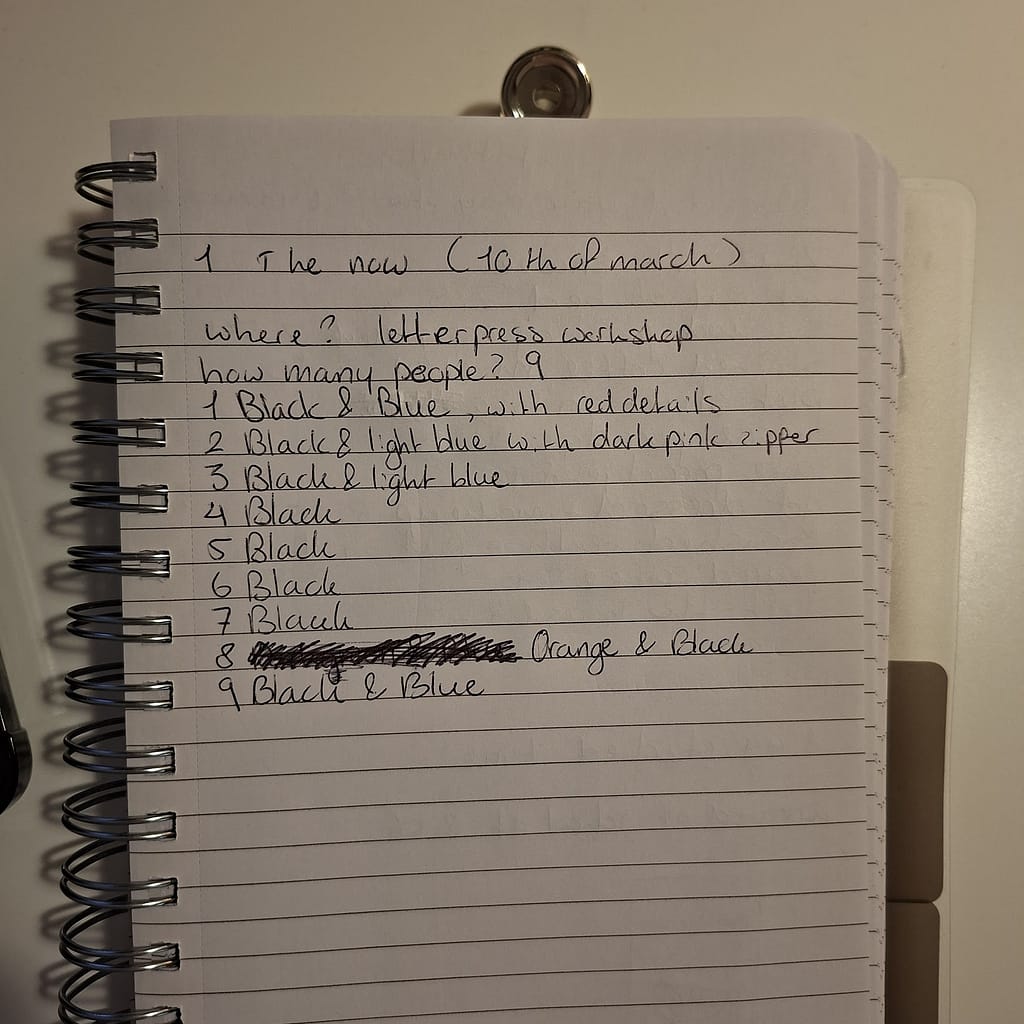 1 The now (10th of march)
where? letterpress workshop
how many people? 9
1 Black & Blue, with red details
2 Black & light blue with dark pink zipper
3 Black & light blue
4 Black
5 Black
6 Black
7 Black
8 Orange & Black
9 Black & Blue